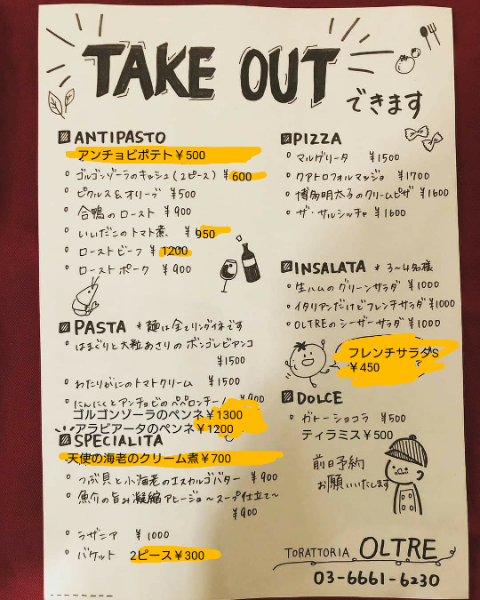 TAKE OUT
できます
ANTIPASTO
アンチョビポテト¥500
ゴルゴンゾーラのキッシュ(2ピース) ¥600
ピクルス&オリーブ ¥500
合鴨のロースト ¥900
いいだこのトマト煮 ¥950
ローストビーフ ¥1200
ローストポーク ¥900
PASTA *麺は全てリングイネです
はまぐりと大粒あさりのボンゴレビアンコ
¥1500
わたりがにのトマトクリーム ¥1500
にんにくとアンチョビのペペロンチーノ ¥900
ゴルゴンゾーラのペンネ¥1300
アラビアータのペンネ¥1200
SPECIALITA
天使の海老のクリーム煮¥700
つぶ貝と小海老のエスカルゴバター ¥900
魚介の旨み凝縮アヒージョ~スープ仕立て~
¥900
ラザニア ¥1000
バケット 2ピース¥300
PIZZA
マルゲリータ ¥1500
クアトロフォルマッジョ ¥1700
博多明太子のクリームピザ ¥1600
ザ・サルシッチャ ¥1600
INSALATA *3~4名様
生ハムのグリーンサラダ ¥1000
イタリアンだけどフレンチサラダ ¥1000
OLTREのシーザーサラダ ¥1000
フレンチサラダS
¥450
DOLCE
ガトーショコラ ¥500
ティラミス¥500
前日予約
お願いいたします
TORATTORIA OLTRE
03-6661-6230